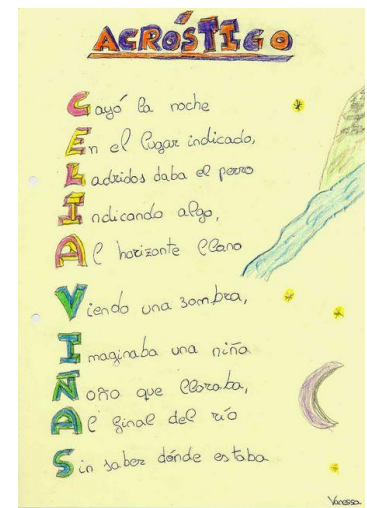 ACRÓSTICO
Cayó la noche
En el lugar indicado,
Ladridos daba el perro
Indicando algo,
Al horizonte llano
Viendo una sombra,
Imaginaba una niña
Ñoño que lloraba,
Al final del río
Sin saber dónde estaba
Vanessa